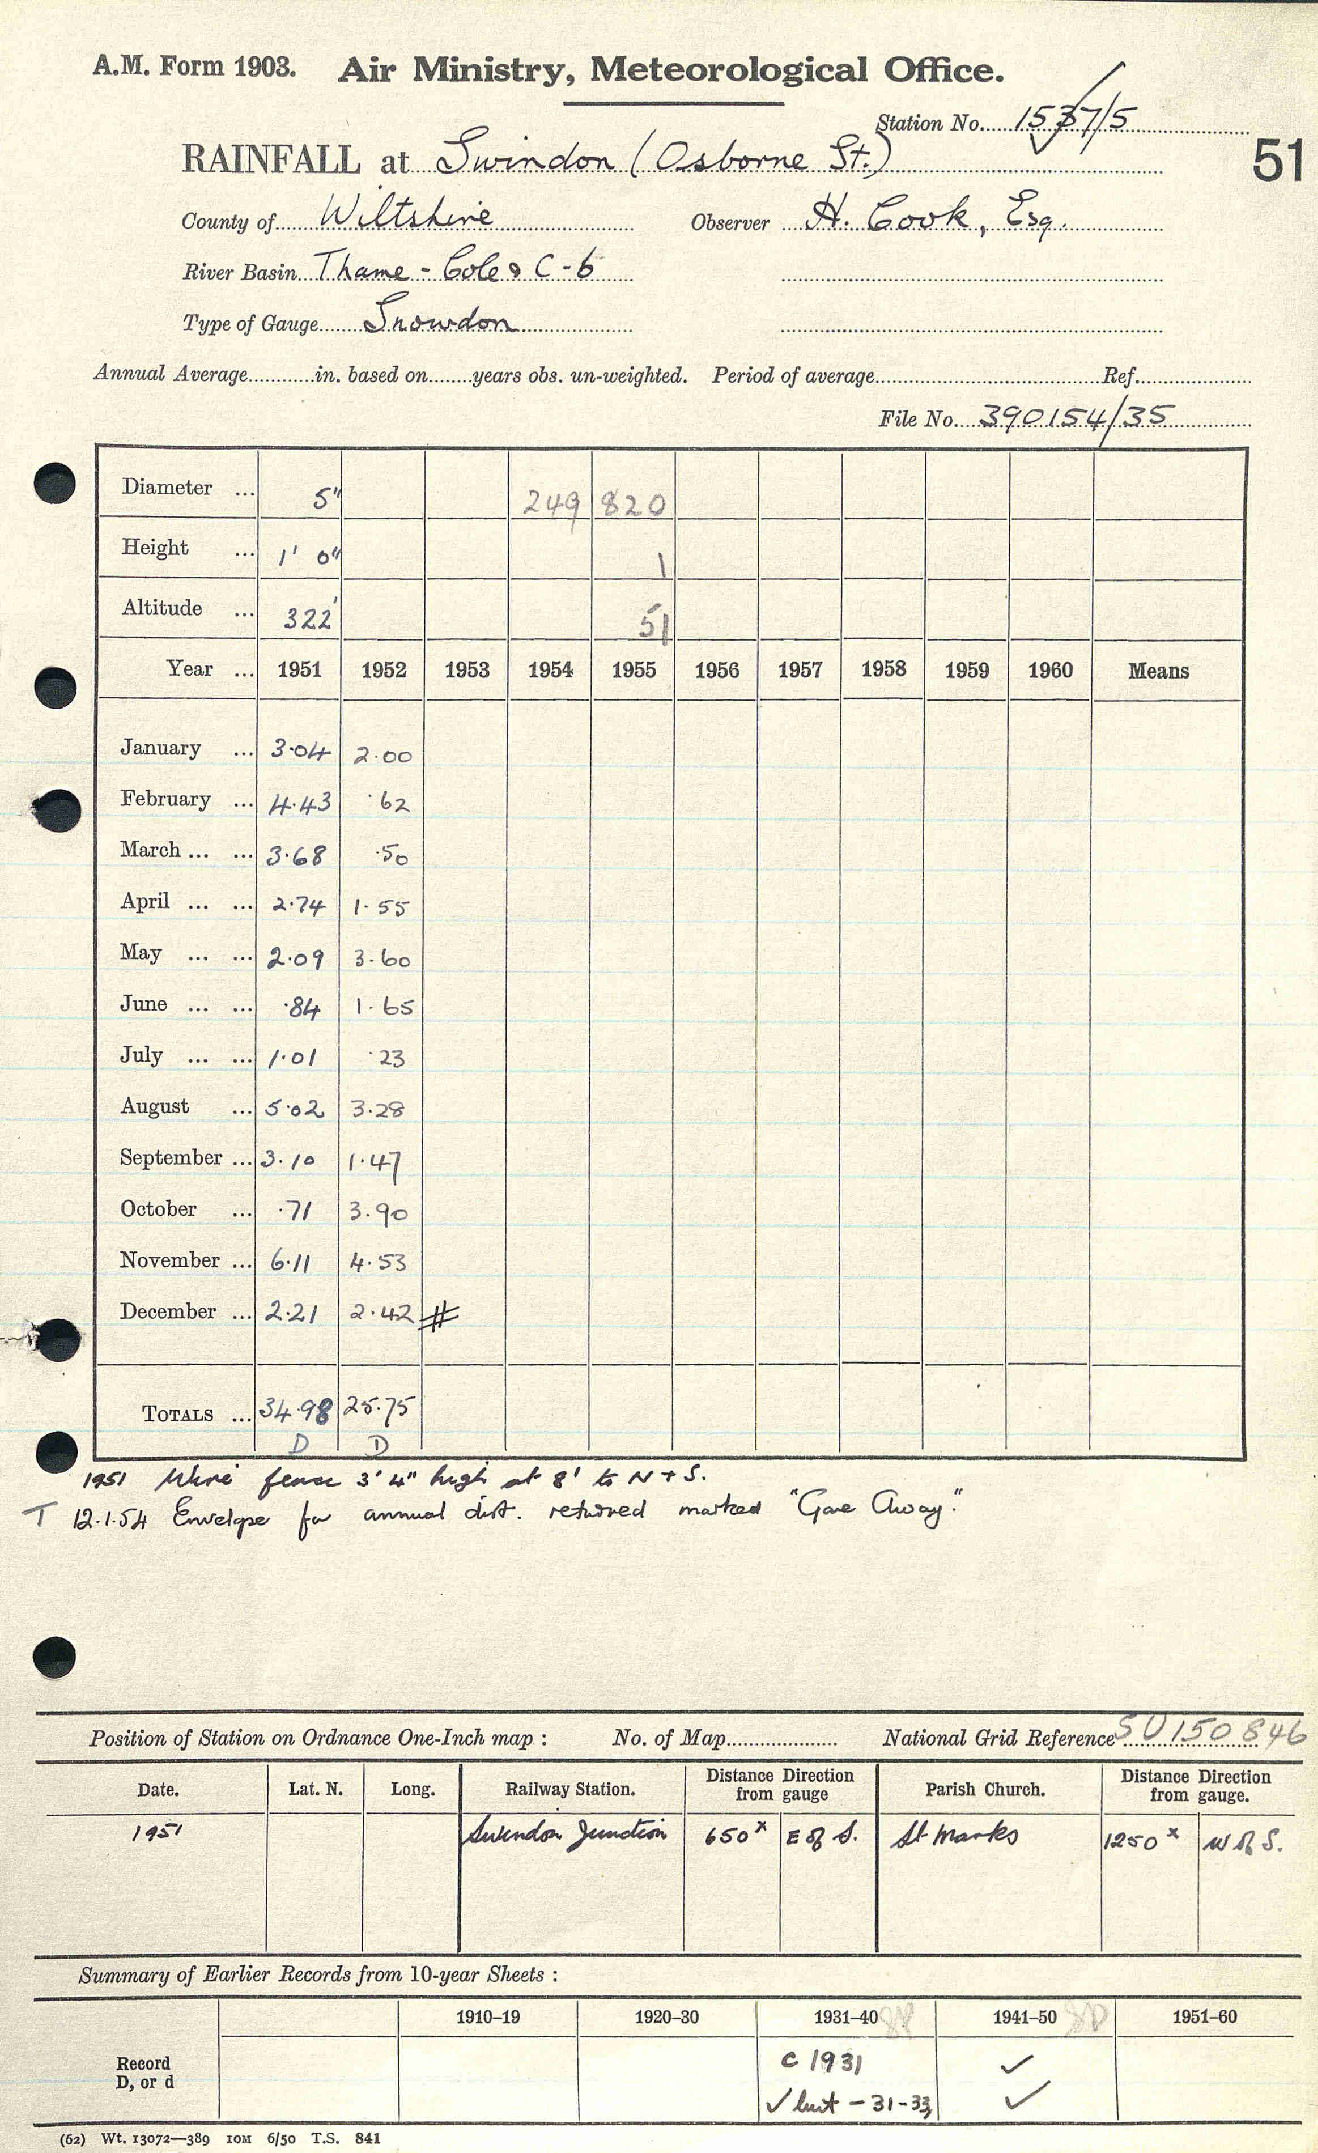 A.M. Form 1903. Air Ministry, Meteorological Office.
Station No. 1537/5
51
RAINFALL at Swindon (Osborne St.)
County of Wiltshire Observer H. Cook, Esq.
River Basin Thame - Cole & C-6
Type of Gauge Snowdon
Annual Average in. based on years obs. un-weighted. Period of average Ref.
File No. 390154/35
Diameter ... 5" 249 820
Height ... 1' 0" 1
Altitude ... 322' 51
Year ... 1951 1952 1953 1954 1955 1956 1957 1958 1959 1960 Means
January ... 3.04 2.00
February ... 4.43 .62
March ... ... 3.68 .50
April ... ... 2.74 1.55
May ... ... 2.09 3.60
June ... ... .84 1.65
July ... ... 1.01 .23
August ... 5.02 3.28
September ... 3.10 1.47
October ... .71 3.90
November ... 6.11 4.53
December ... 2.21 2.42 #
TOTALS ... 34.98 25.75
D D
1951 Wire fence 3' 4" high at 8' to N + S.
T 12.1.54 Envelope for annual dist. returned marked "Gone Away".
Position of Station on Ordnance One-Inch map : No. of Map National Grid Reference SU150846
Date. Lat. N. Long. Railway Station. Distance Direction from gauge Parish Church. Distance Direction from gauge.
1951 Swindon Junction 650x E of S. St Marks 1250x W of S.
Summary of Earlier Records from 10-year Sheets :
1910–19 1920–30 1931–40 1941–50 1951–60
Record D, or d
c 1931 ✓
✓ but - 31-33 ✓
(62) Wt. 13072—389 10M 6/50 T.S. 841